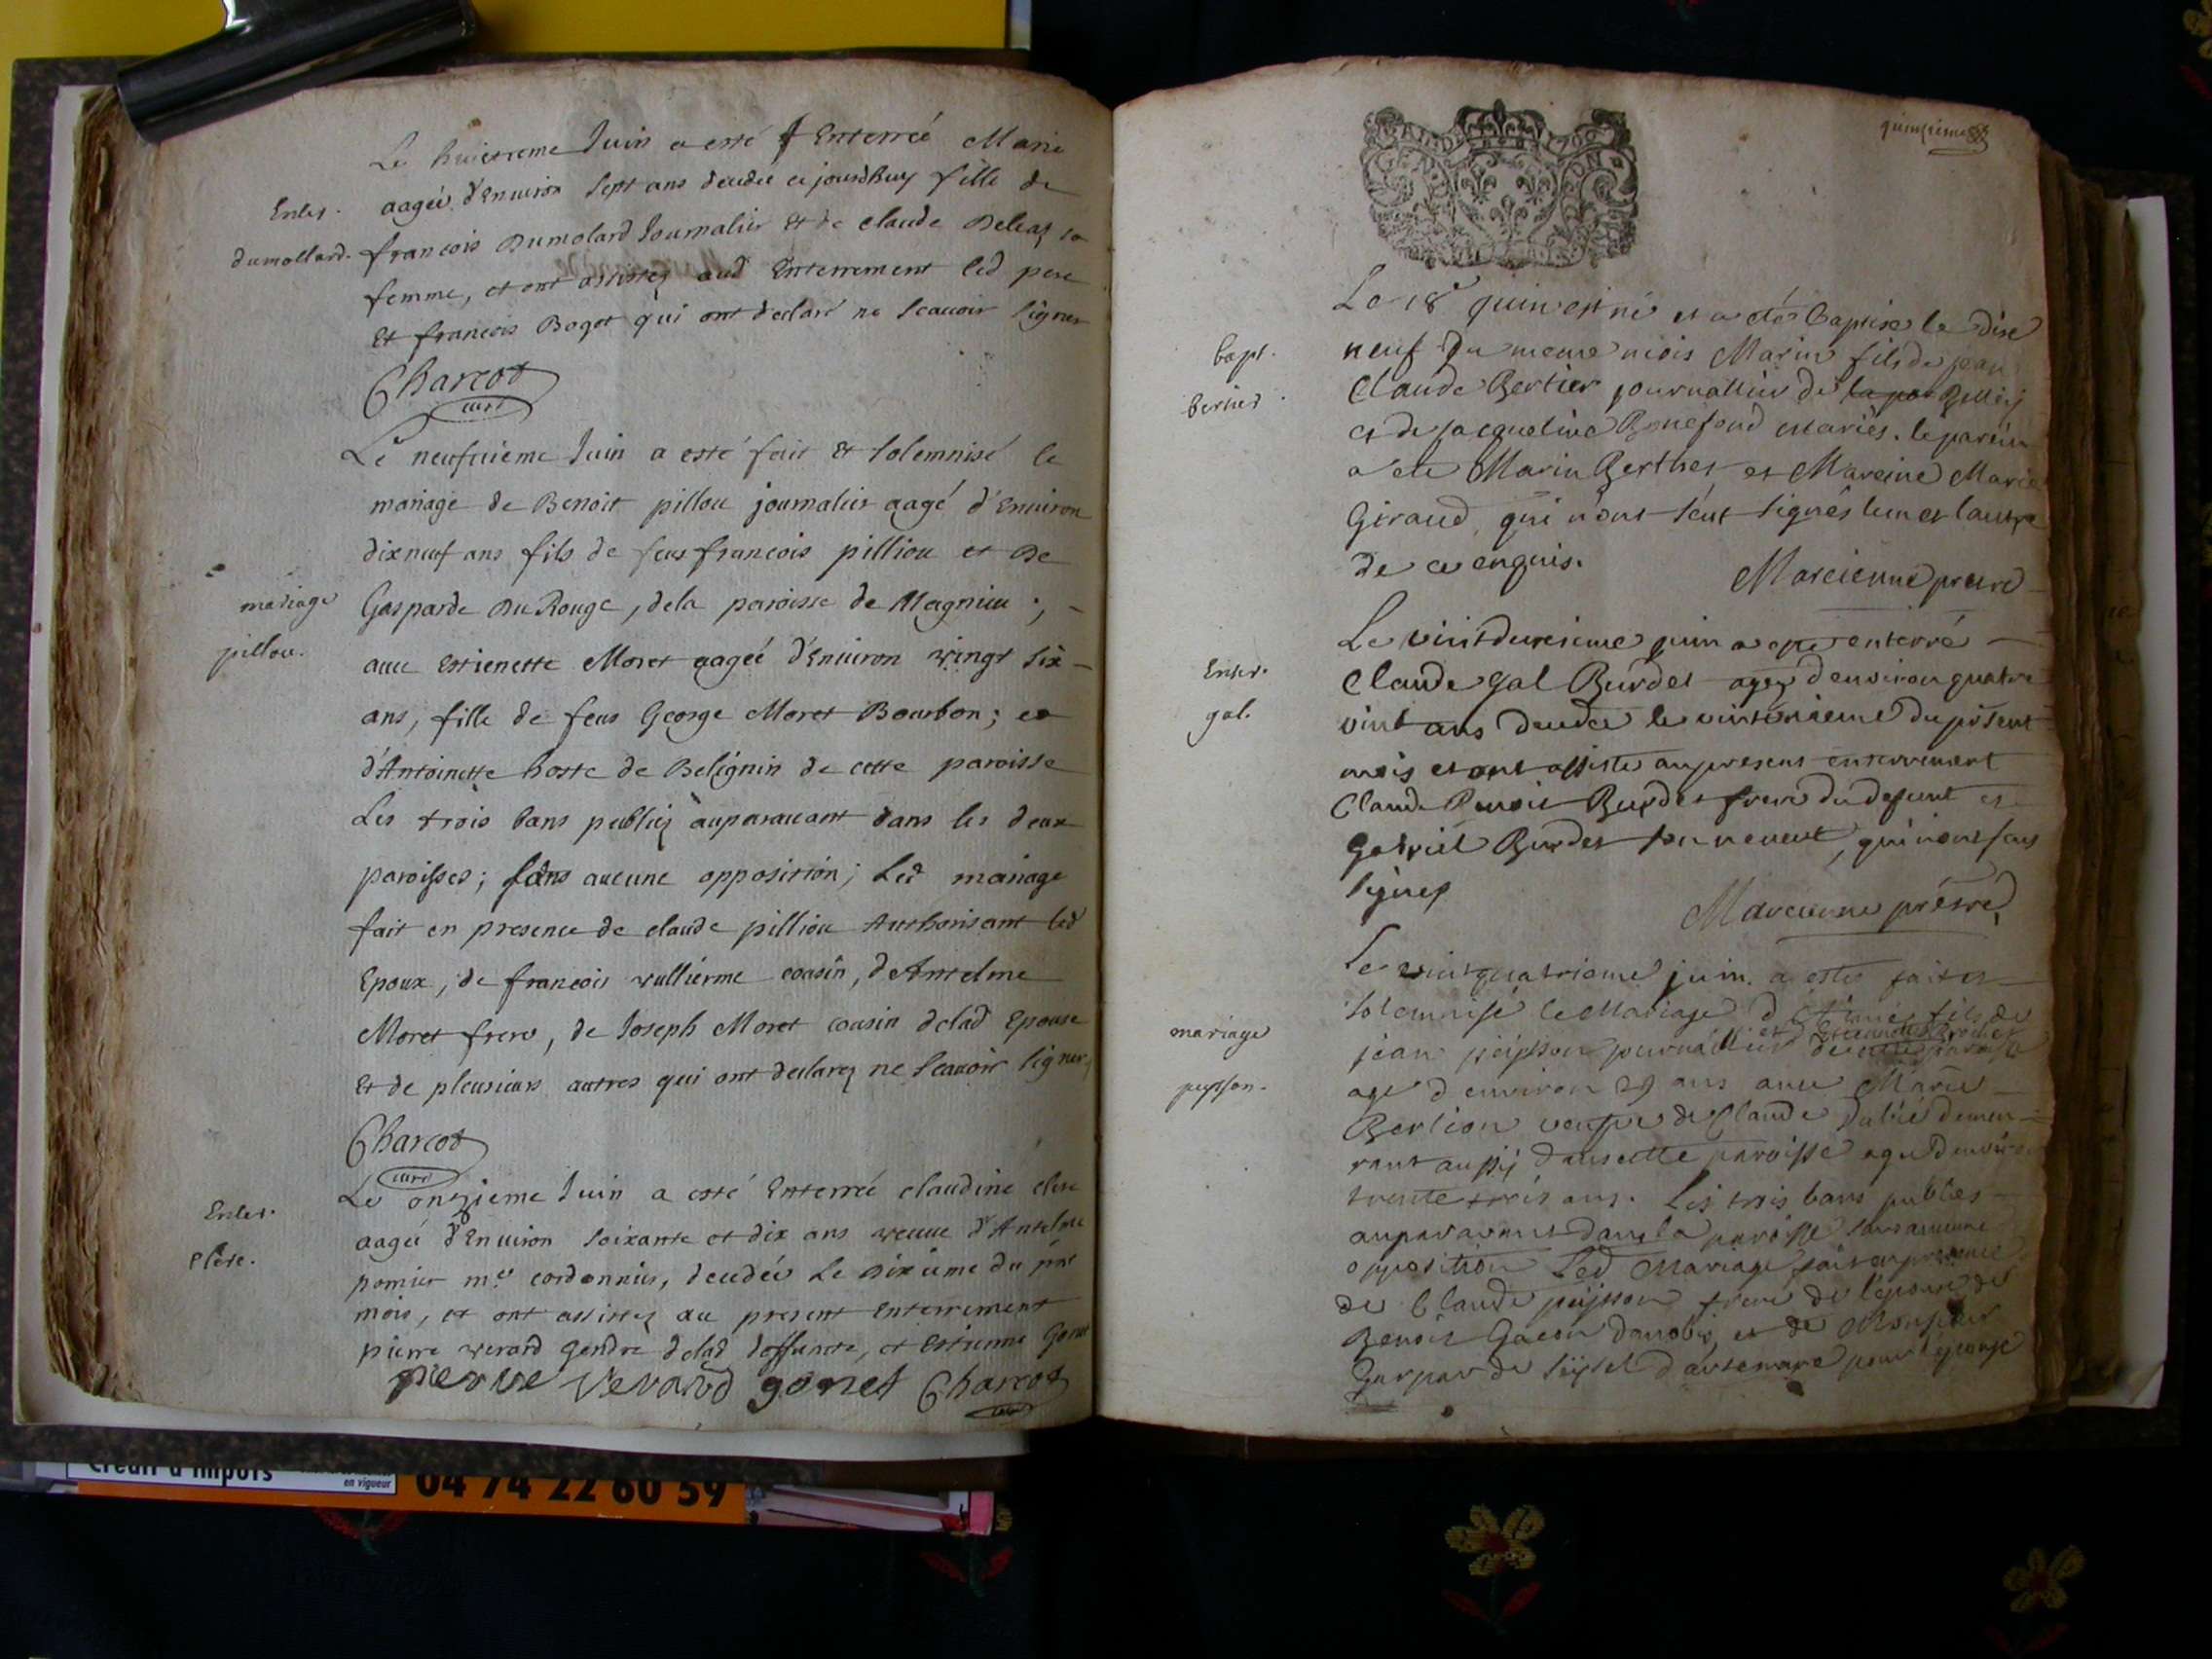 Le huictieme Juin a esté Enterreé Marie
Enter. aageé d'Enuiron sept ans decedeé ce jourdhuy fille de
dumollard. francois Dumolard Journalier et de claude
femme, et ont assistez aud Enterrement led pere
Et francois Bogot qui ont declaré ne scauoir signer
Charcot
curé
Le neufuieme Juin a esté fait et solemnisé le
mariage de Benoit pillou journalier aagé d'Enuiron
dixneuf ans fils de feus francois pilliou et de
mariage Gasparde Du Rouge, dela paroisse de Magnieu ;
pillou. auec Estienette Moret aageé d'Enuiron vingt six
ans, fille de feus George Moret Bourbon ; et
d'Antoinette hoste de Belignin de cette paroisse
Les trois bans publiez auparauant dans les deux
paroisses ; sans aucune opposition ; Led mariage
fait en presence de claude pilliou Authorisant led
Epoux, de francois vullierme cousin, d'Antelme
Moret frere, de Joseph Moret cousin delad Epouse
Et de plusieurs autres qui ont declarez ne scauoir signer
Charcot
curé
Le onzieme Juin a esté Enterreé claudine
Enter. aageé d'Enuiron soixante et dix ans veuue d'Antelme
pomier me cordonnier, decedeé Le dixieme du pnt
mois, et ont assistez au present Enterrement
pierre verard gendre delad deffuncte, et Estienne Gonet
pierre verard gonet Charcot
curé
quinzieme
Le 18e juin est né et a eté baptisé le dixe
bapt. neuf du meme mois Marin fils de jean
Claude Bertier journallier de
et de jacqueline Bonefond mariés. le parein
a eté Marin Berthet et Mareine Marie
Giraud, qui n'ont seut signés lun et lautre
de ce enquis.
Marcienne prestre
Le vint deuxieme juin a esté enterré
Enter. Claude gal Burdet agez d'environ quatre
gal. vint ans decedé le vint unieme du présent
mois et ont assisté au present enterrement
Claude Benoit Burdet frere du defunt et
Gabriel Burdet son neveut, qui n'ont sceus
signes
Marcienne préstre
Le vint quatrieme juin a esté fait et
solemnisé le Mariage d'Etiene fils de
mariage jean peysson journallier de cette paroisse
peysson. agé d'environ 29 ans avec Marie
Bertion veufve de Claude Dubié demeu-
rant aussy dans cette paroisse agée d'environ
trente trois ans. Les trois bans publies
auparavant dans la paroisse sans aucune
opposition Led Mariage fait en presence
de Claude peysson frere de l'epoux de
Benoit Gacon et de Monsieur
Gaspar de Seyssel d'artemare pour l'épouse
Credit d'impôts
en vigueur
04 74 22 60 59